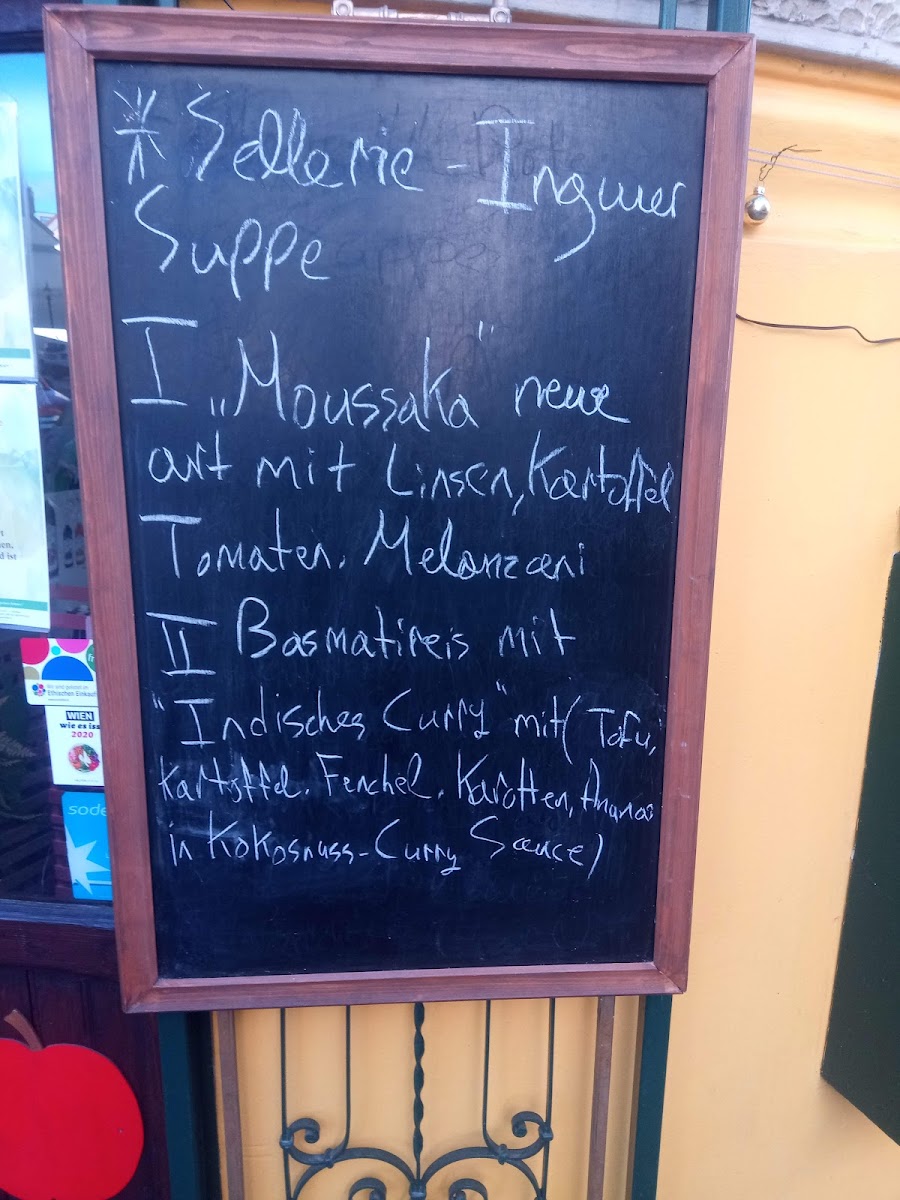 * Sellerie - Ingwer
Suppe
I „Moussaka" neue
art mit Linsen, Kartoffel
Tomaten, Melanzani
II Basmatireis mit
"Indisches Curry" mit (Tofu,
Kartoffel, Fenchel, Karotten, Ananas
in Kokosnuss-Curry Sauce)
Ethischen Einkauf
WIEN
wie es isst
2020
sode